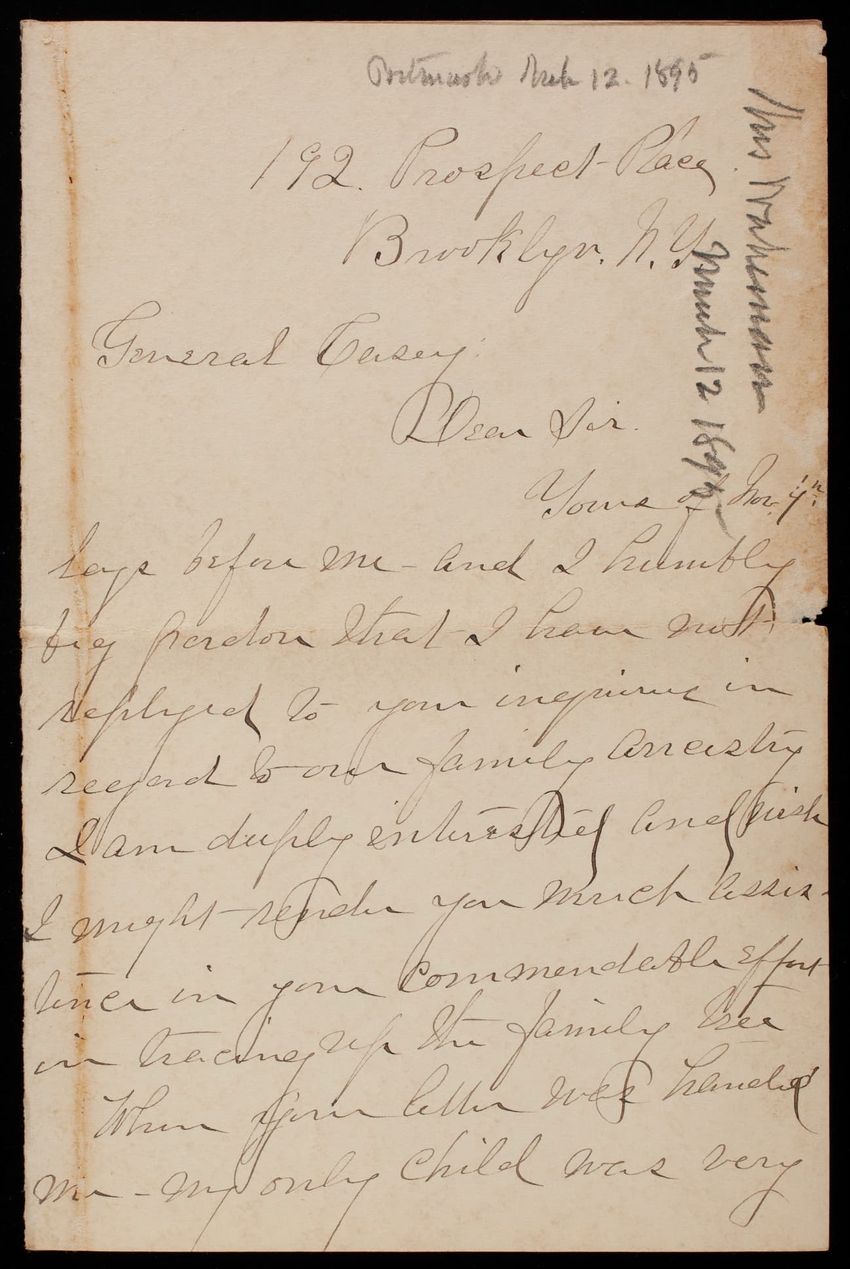 Postmark Mch 12. 1895
192. Prospect Place
Brooklyn. N.Y.
Mrs Wakeman
March 12 1895
General Casey.
Dear Sir.
Yours of Nov.
lays before me - and I humbly
beg pardon that I have not
replyed to your inquiries in
regard to our family ancestry
I am deeply interested and wish
I might render you much assis-
tence in your commendable effort
in tracing up the family tree
When your letter was handed
me - my only child was very